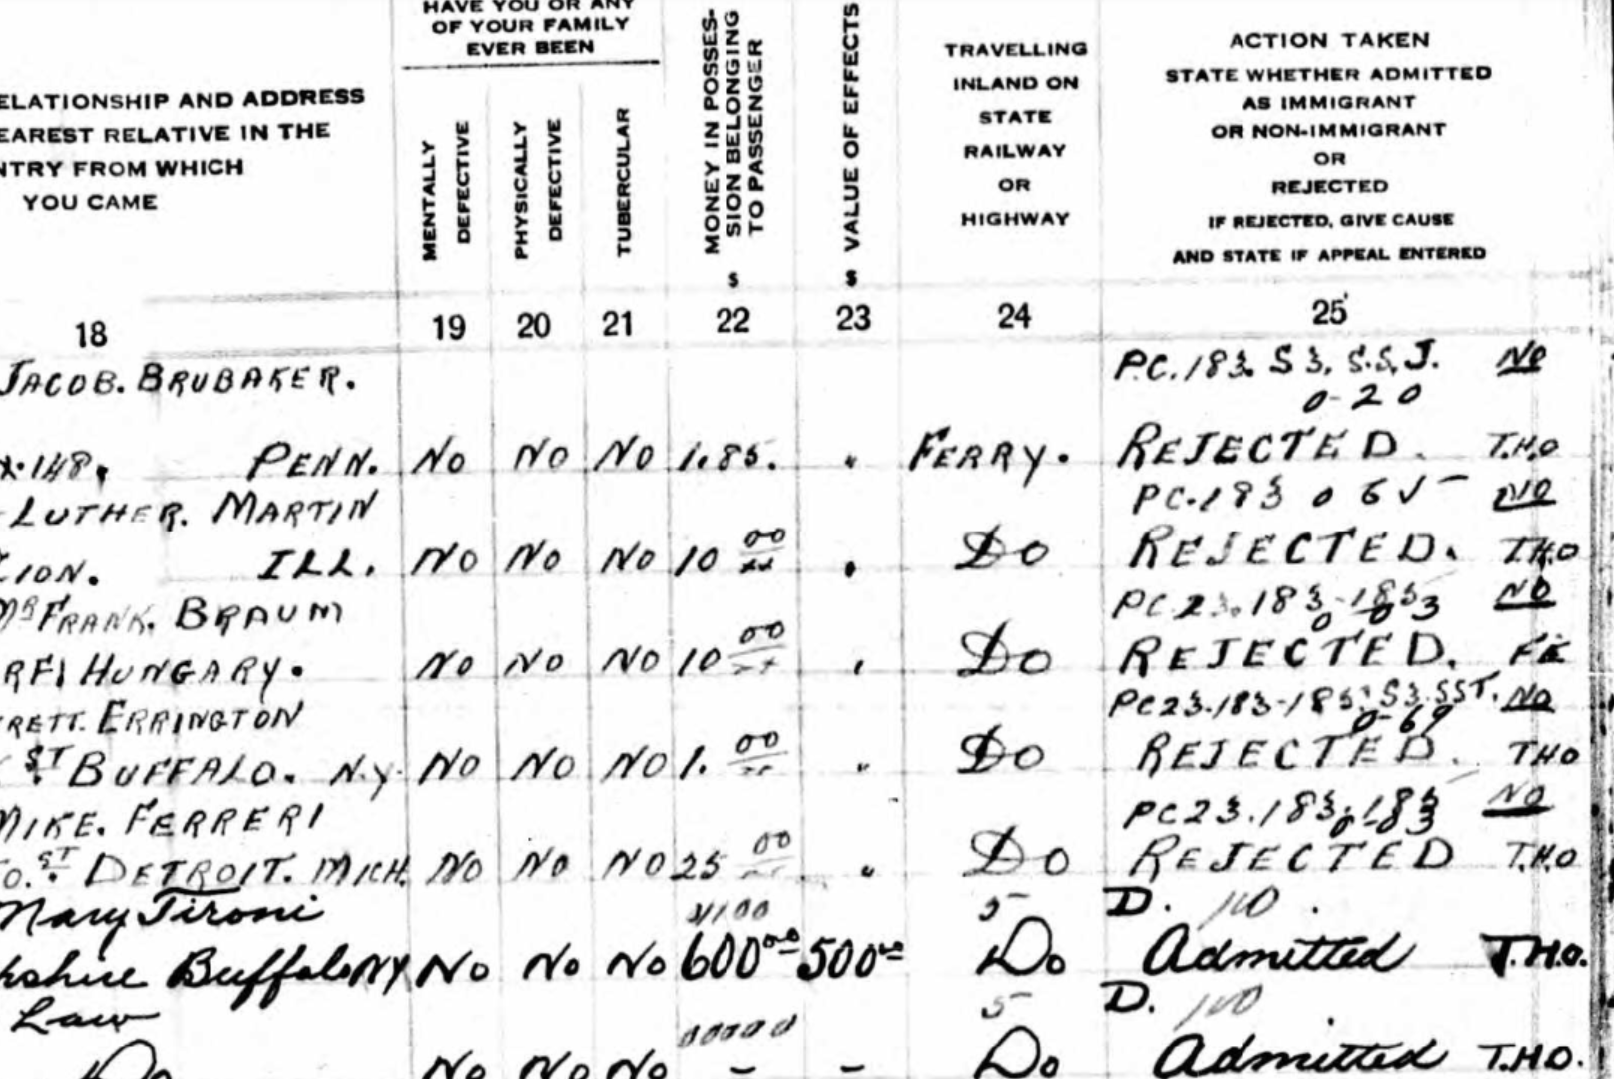 HAVE YOU OR ANY
OF YOUR FAMILY
EVER BEEN
ELATIONSHIP AND ADDRESS
EAREST RELATIVE IN THE
NTRY FROM WHICH
YOU CAME
MENTALLY
DEFECTIVE
PHYSICALLY
DEFECTIVE
TUBERCULAR
MONEY IN POSSES-
SION BELONGING
TO PASSENGER
$
VALUE OF EFFECTS
$
TRAVELLING
INLAND ON
STATE
RAILWAY
OR
HIGHWAY
ACTION TAKEN
STATE WHETHER ADMITTED
AS IMMIGRANT
OR NON-IMMIGRANT
OR
REJECTED
IF REJECTED, GIVE CAUSE
AND STATE IF APPEAL ENTERED
18 19 20 21 22 23 24 25
JACOB. BRUBAKER. P.C.183. S3. S.S.J. NO
0-20
148. PENN. NO NO NO 1.85. " FERRY. REJECTED. T.H.O
LUTHER. MARTIN PC.183 0 NO
ZION. ILL. NO NO NO 10 00 " DO REJECTED. T.H.O
MR FRANK. BRAUM PC 23.183-183 NO
RFI HUNGARY. NO NO NO 10 00 " DO REJECTED.
RETT. ERRINGTON PC23.183-185. S3.SST. NO
0-69
ST BUFFALO. N.Y. NO NO NO 1. 00 " DO REJECTED. THO
MIKE. FERRERI PC23.183-183 NO
TO. ST DETROIT. MICH. NO NO NO 25 00 " DO REJECTED T.H.O
Mary Tironi 5 D.
kshire Buffalo NY No No No 600 00 500 00 Do Admitted T.H.O.
Law 5 D.
00000
Do No No No - - Do Admitted T.H.O.